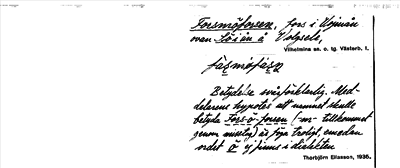 Forsmöforsen, fors i Vojmån
ovan Söiån å Volgsele,
Vilhelmina sn. o. tg. Västerb. l.
Betydelse svårförklarlig. Med-
delarens hypotes att namnet skulle
betyda Fors-ö-forsen (-m- tillkommet
genom misstag) är föga troligt, emedan
ordet ö ej finns i dialekten
Thorbjörn Eliasson, 1935.